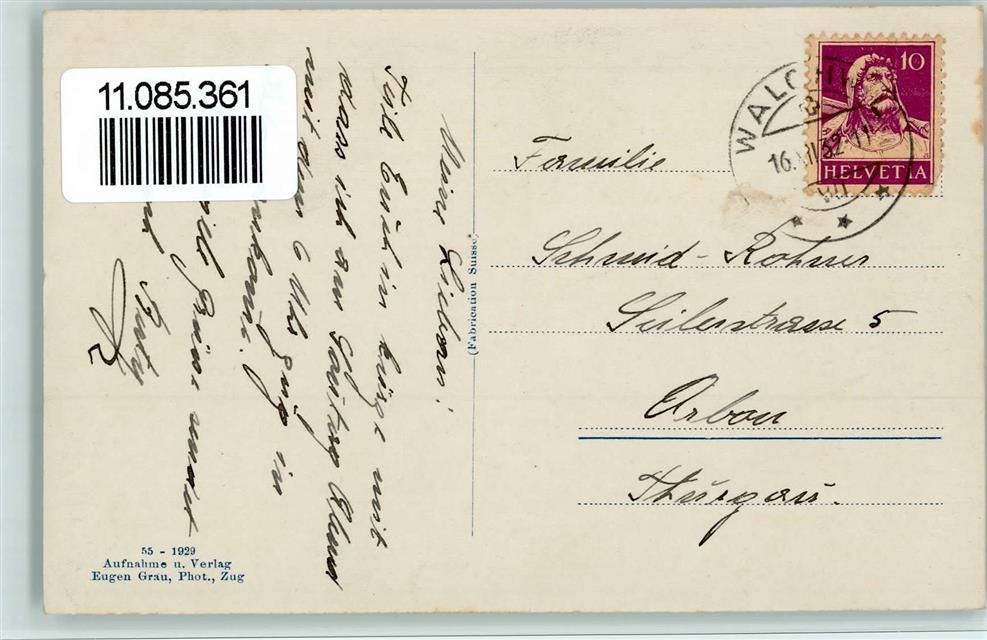 11.085.361
Meine Lieben!
Teile Euch in kürze mit
dass ich am Samstag Abend
mit dem 6 Uhr Zug in
ankomme.
viele Grüsse
Familie
Schmid-Rohner
Seilerstrasse 5
Arbon
Thurgau.
10
HELVETIA
WALCHWIL
(Fabrication Suisse)
55 - 1929
Aufnahme u. Verlag
Eugen Grau, Phot., Zug